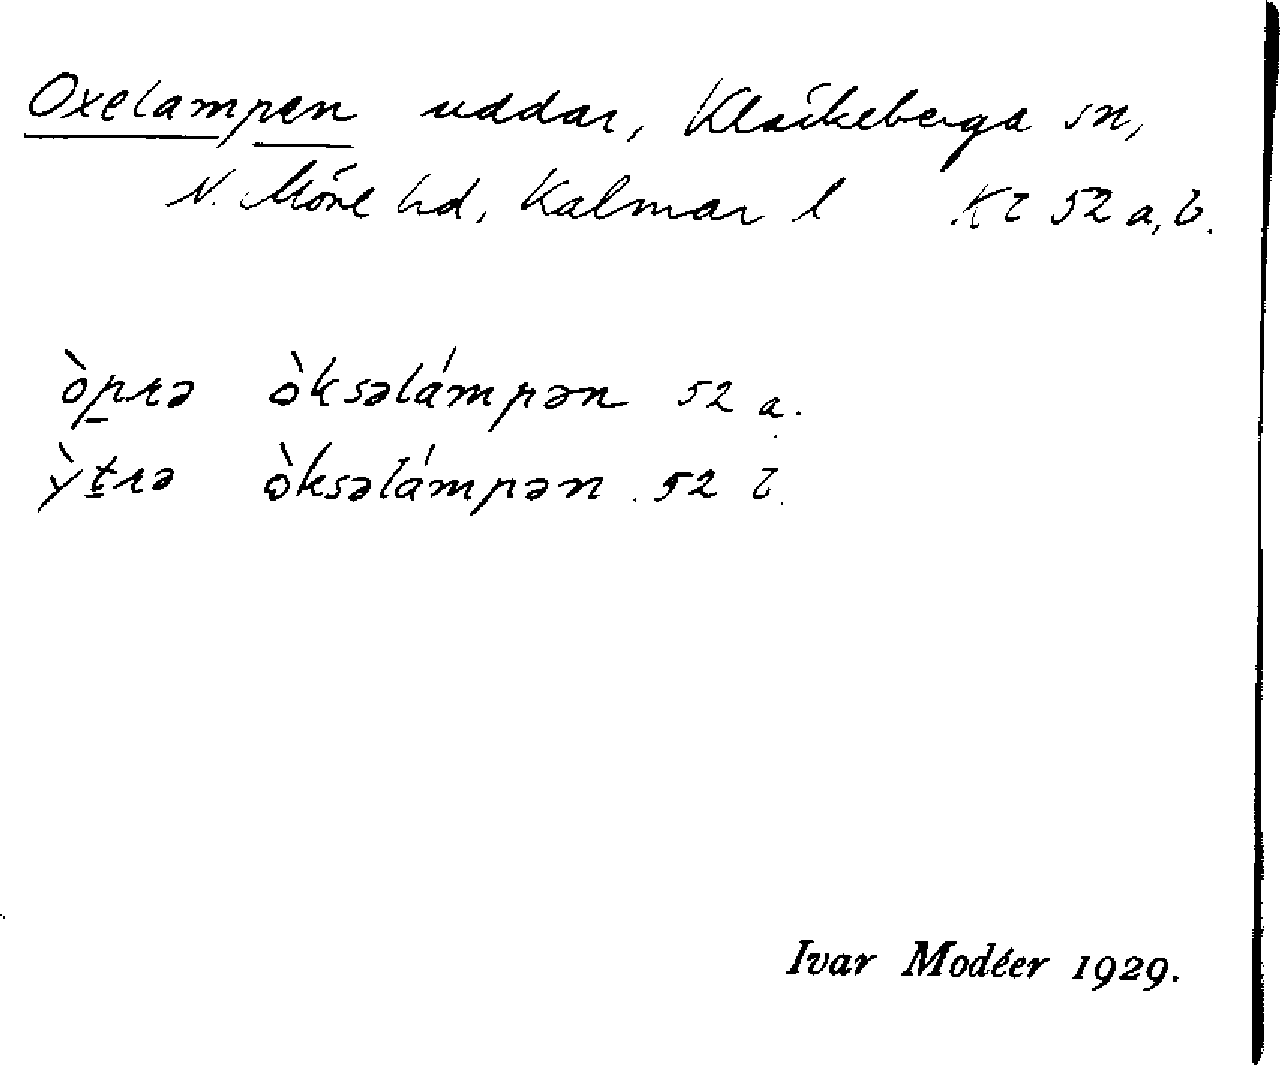 Oxelampen uddar, Kläckeberga sn,
N. Möre hd, Kalmar l Kl 52 a, b.
òp̲rə òksəlámpən 52 a.
ỳt̲rə òksəlámpən. 52 b.
Ivar Modéer 1929.